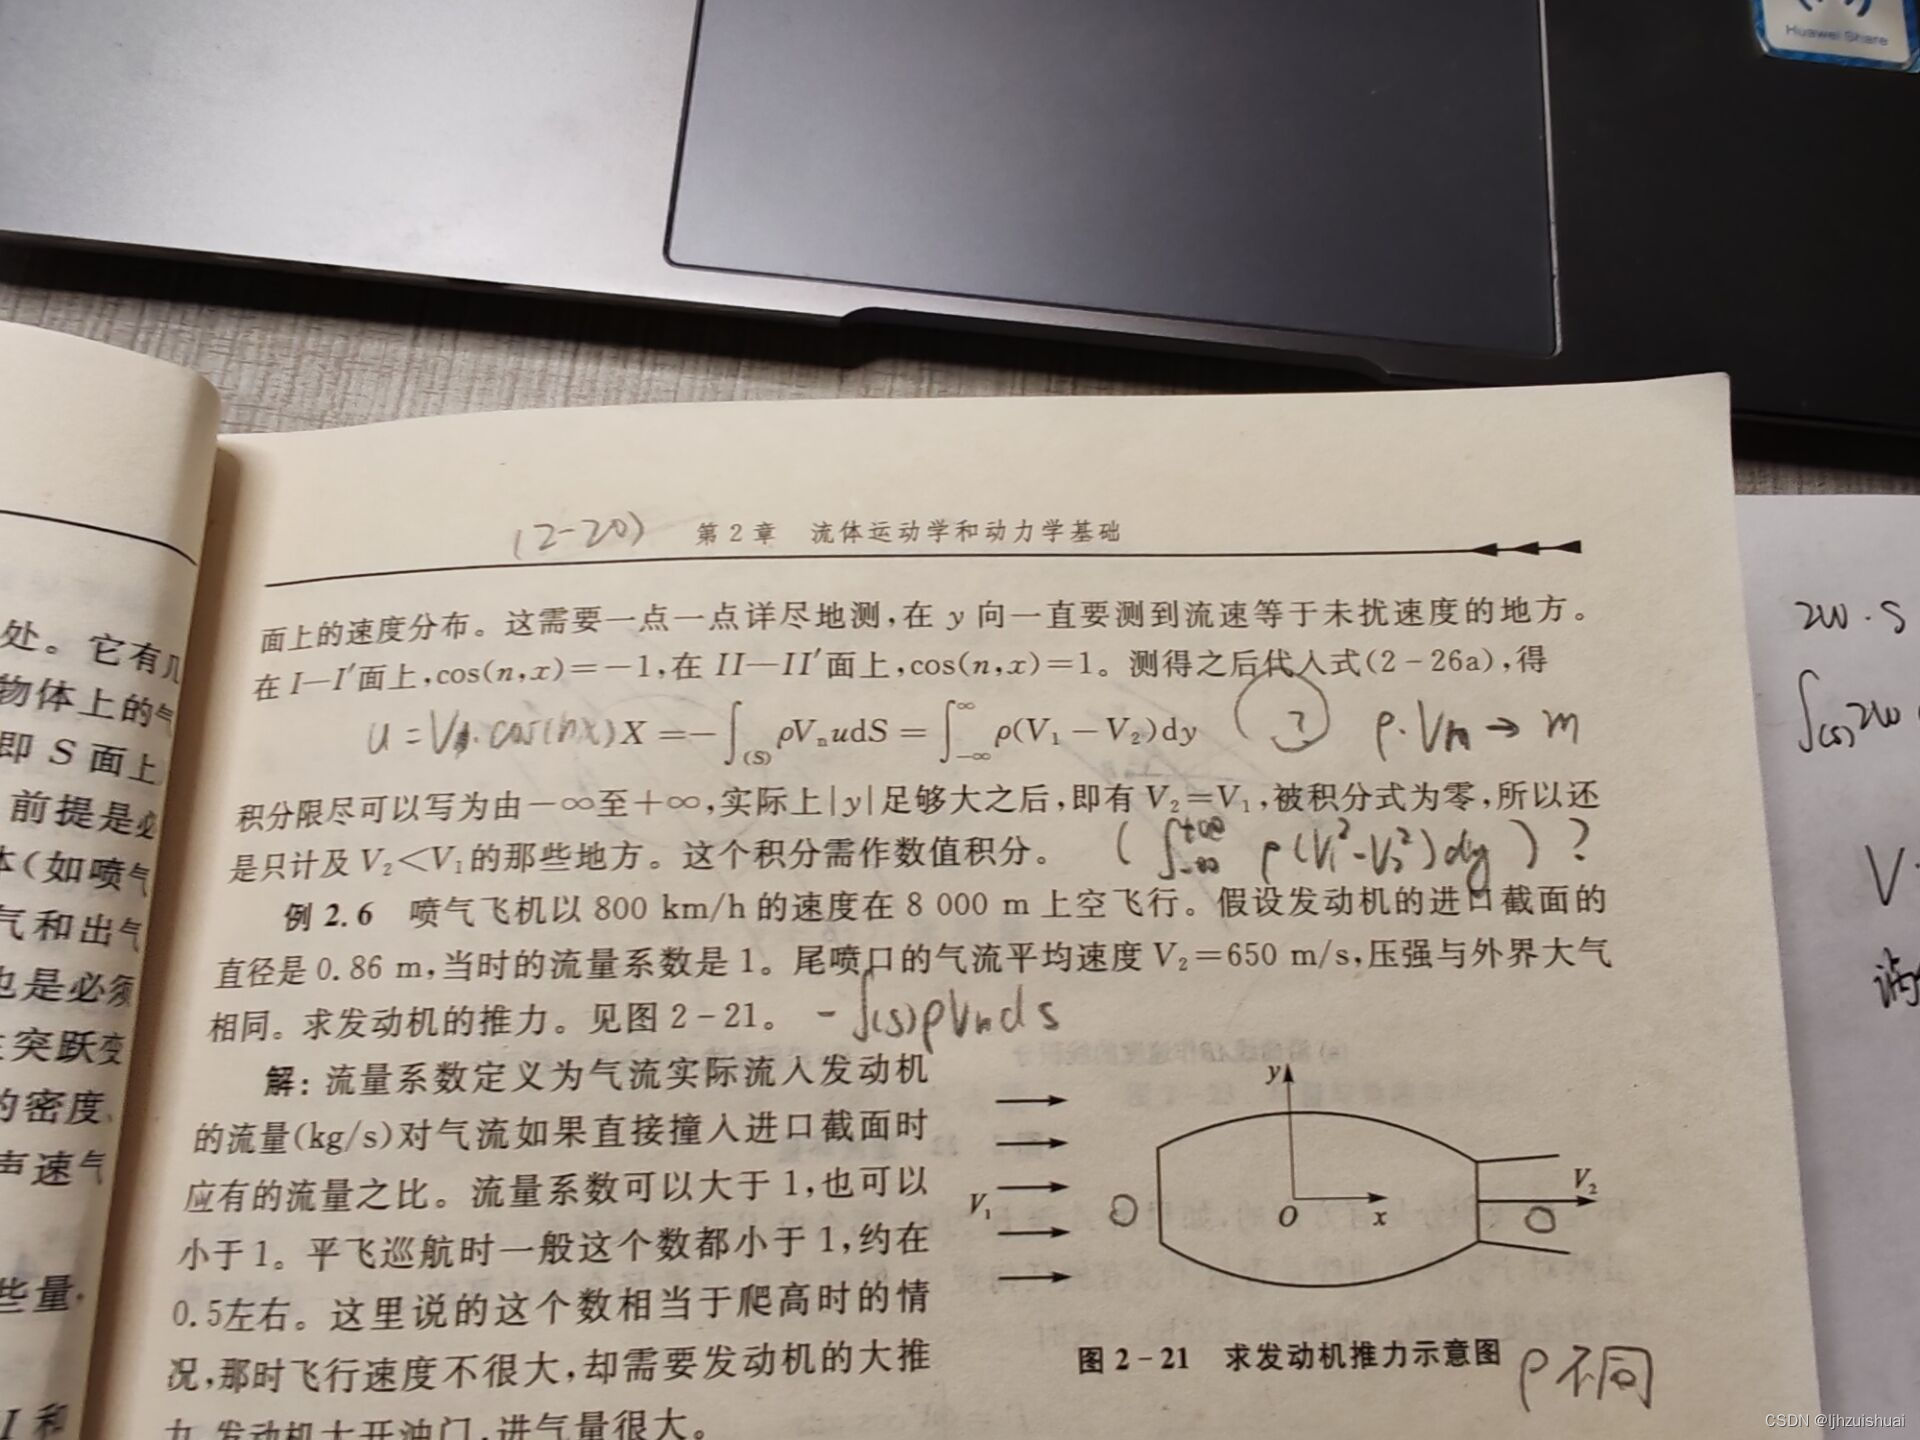 Huawei Share
(2-20) 第2章 流体运动学和动力学基础
面上的速度分布。这需要一点一点详尽地测,在 y 向一直要测到流速等于未扰速度的地方。
在 I—I′面上,cos(n,x)=−1,在 II—II′面上,cos(n,x)=1。测得之后代入式(2-26a),得
X =−∫(S) ρVₙudS = ∫−∞^∞ ρ(V₁ − V₂)dy ? ρ·Vₙ → m
积分限尽可以写为由−∞至+∞,实际上|y|足够大之后,即有 V₂=V₁,被积分式为零,所以还
是只计及 V₂<V₁的那些地方。这个积分需作数值积分。 (∫−∞^+∞ ρ(V₁²-V₂²)dy)?
例 2.6 喷气飞机以 800 km/h 的速度在 8 000 m 上空飞行。假设发动机的进口截面的
直径是 0.86 m,当时的流量系数是 1。尾喷口的气流平均速度 V₂=650 m/s,压强与外界大气
相同。求发动机的推力。见图 2-21。 -∫(s)ρVₙds
解: 流量系数定义为气流实际流入发动机
的流量(kg/s)对气流如果直接撞入进口截面时
应有的流量之比。流量系数可以大于 1,也可以
小于 1。平飞巡航时一般这个数都小于 1,约在
0.5左右。这里说的这个数相当于爬高时的情
况,那时飞行速度不很大,却需要发动机的大推
力,发动机大开油门,进气量很大。
y
V₁
O
x
V₂
图 2-21 求发动机推力示意图
ρ不同
处。它有几
物体上的气
即 S 面上
前提是必
体(如喷气
气和出气
也是必须
突跃变
的密度、
声速气
些量,
I 和
2W·S
∫(s)2W
V
CSDN @ljhzuishuai